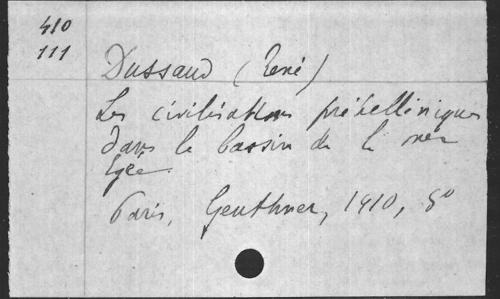 410
111
Dussaud (René)
Les civilisations préhelléniques
dans le bassin de la mer
Egée.
Paris, Geuthner, 1910, 8º